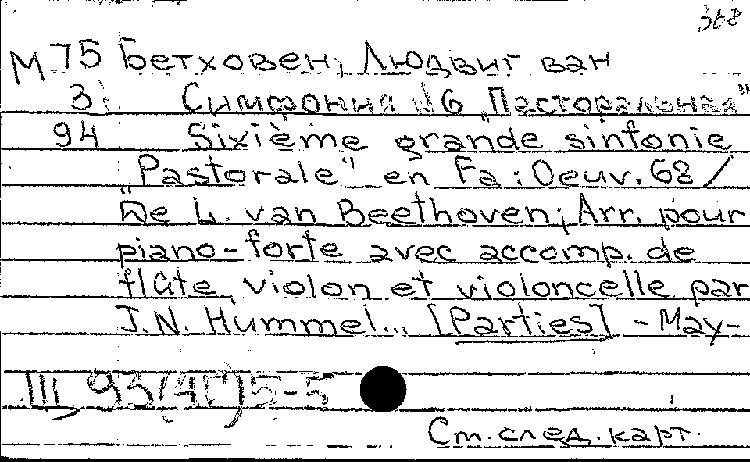 368
М75 Бетховен, Людвиг ван
3 Симфония №6 "Пасторальная"
94 Sixième grande sinfonie
"Pastorale" en Fa: Oeuv. 68/
De L. van Beethoven; Arr. pour
piano-forte avec accomp. de
flûte, violon et violoncelle par
J.N. Hummel... [Parties] - May-
Ш 93(4Г)5-5
См. след. карт.